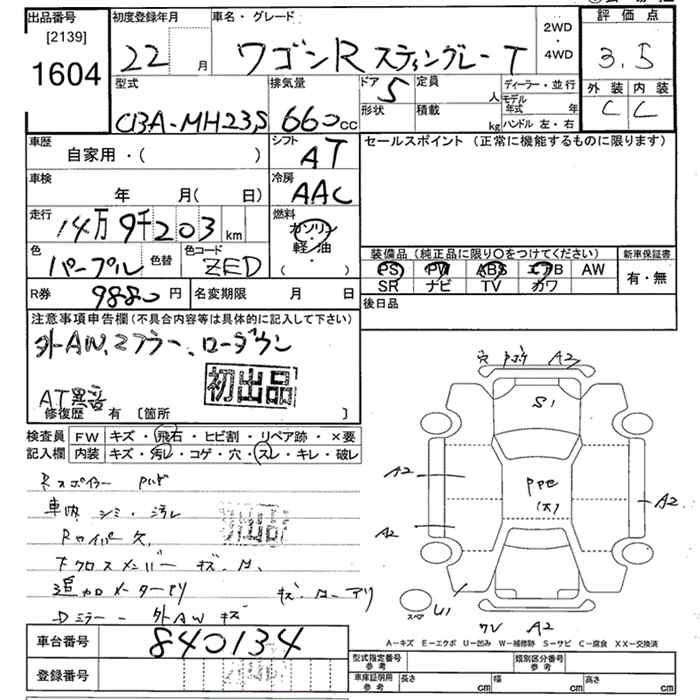 出品番号
[2139]
1604
初度登録年月
22 月
車名・グレード
ワゴンR スティングレー T
2WD
・
4WD
評価点
3.5
外装 内装
C C
型式
CBA-MH23S
排気量
660 cc
ドア 5
形状
定員 人
積載 kg
ディーラー・並行
モデル年式 年
ハンドル 左・右
車歴
自家用・( )
シフト
AT
セールスポイント (正常に機能するものに限ります)
車検
年 月( 日)
冷房
AAC
走行
14万9千203 km
燃料
ガソリン
軽・油
( ・ )
色
パープル
色替
色コード
ZED
装備品 (純正品に限り〇をつけてください)
PS PW ABS エアB AW
SR ナビ TV カワ
新車保証書
有・無
R券 9880 円
名変期限 月 日
後日品
注意事項申告欄 (不具合内容等は具体的に記入して下さい)
外AW、マフラー、ローダウン
初出品
AT異音
修復歴 有 〔箇所 〕
検査員
記入欄
FW キズ・飛石・ヒビ割・リペア跡・×要
内装 キズ・汚レ・コゲ・穴・スレ・キレ・破レ
Rスポイラー
車内 シミ・汚レ
Rワイパー欠
下クロスメンバー キズ・
追加メーターアリ
Dミラー 外AW キズ
車台番号 840134
登録番号
A2
S1
A2
A2
A2
PPC
(大)
スペア
U1
A2
A-キズ E-エクボ U-凹み W-補修跡 S-サビ C-腐食 XX-交換済
型式指定番号
参考
類別区分番号
参考
車庫証明用
参考
長さ cm
幅 cm
高さ cm